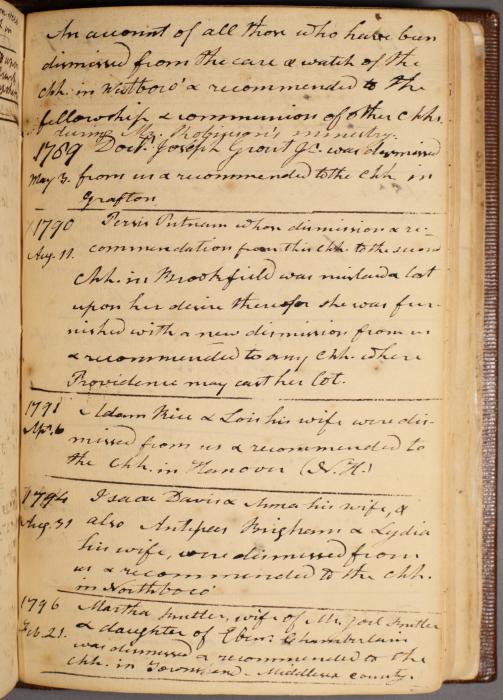 An account of all those who have been
dismissed from the care & watch of the
chh. in Westboro' & recommended to the
fellowship & communion of other Chhs.
during Mr. Robinson's ministry.
1789 Doct. Joseph Grout Jr. was dismissed
May 3. from us & recommended to the Chh. in
Grafton
1790 Persis Putnam whose dismission & re-
Aug. 11. commendation from this Chh. to the second
Chh. in Brookfield was mislaid & lost
upon her desire therefor she was fur-
nished with a new dismission from us
& recommended to any Chh. where
Providence may cast her lot.
1791 Adam Rice & Lois his wife were dis-
Apr. 6 missed from us & recommended to
the Chh. in Hanover (N.H.)
1794 Isaac Davis & Anna his wife, &
Aug. 31 also Antipas Brigham & Lydia
his wife, were dismissed from
us & recommended to the chh.
in Northboro'
1796 Martha wife of Mr. Joel
Feb. 21. & daughter of Eben. Chamberlain
was dismissed & recommended to the
Chh. in Townsend - Middlesex county.